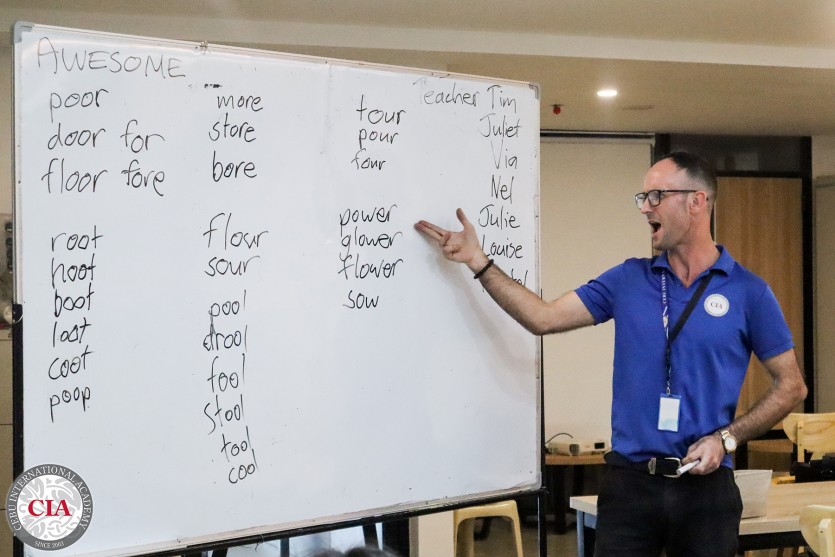 AWESOME
poor
door for
floor fore
root
hoot
boot
loot
coot
poop
more
store
bore
flour
sour
pool
drool
fool
stool
tool
cool
tour
pour
four
power
glower
flower
sow
Teacher Tim
Juliet
Via
Nel
Julie
Louise
CIA
CEBU INTERNATIONAL ACADEMY
CIA
SINCE 2003